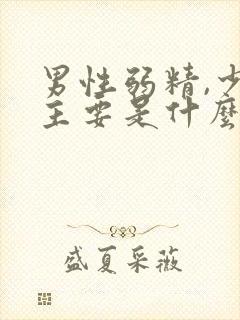 男性弱精,少
主要是什麼
盛夏采薇